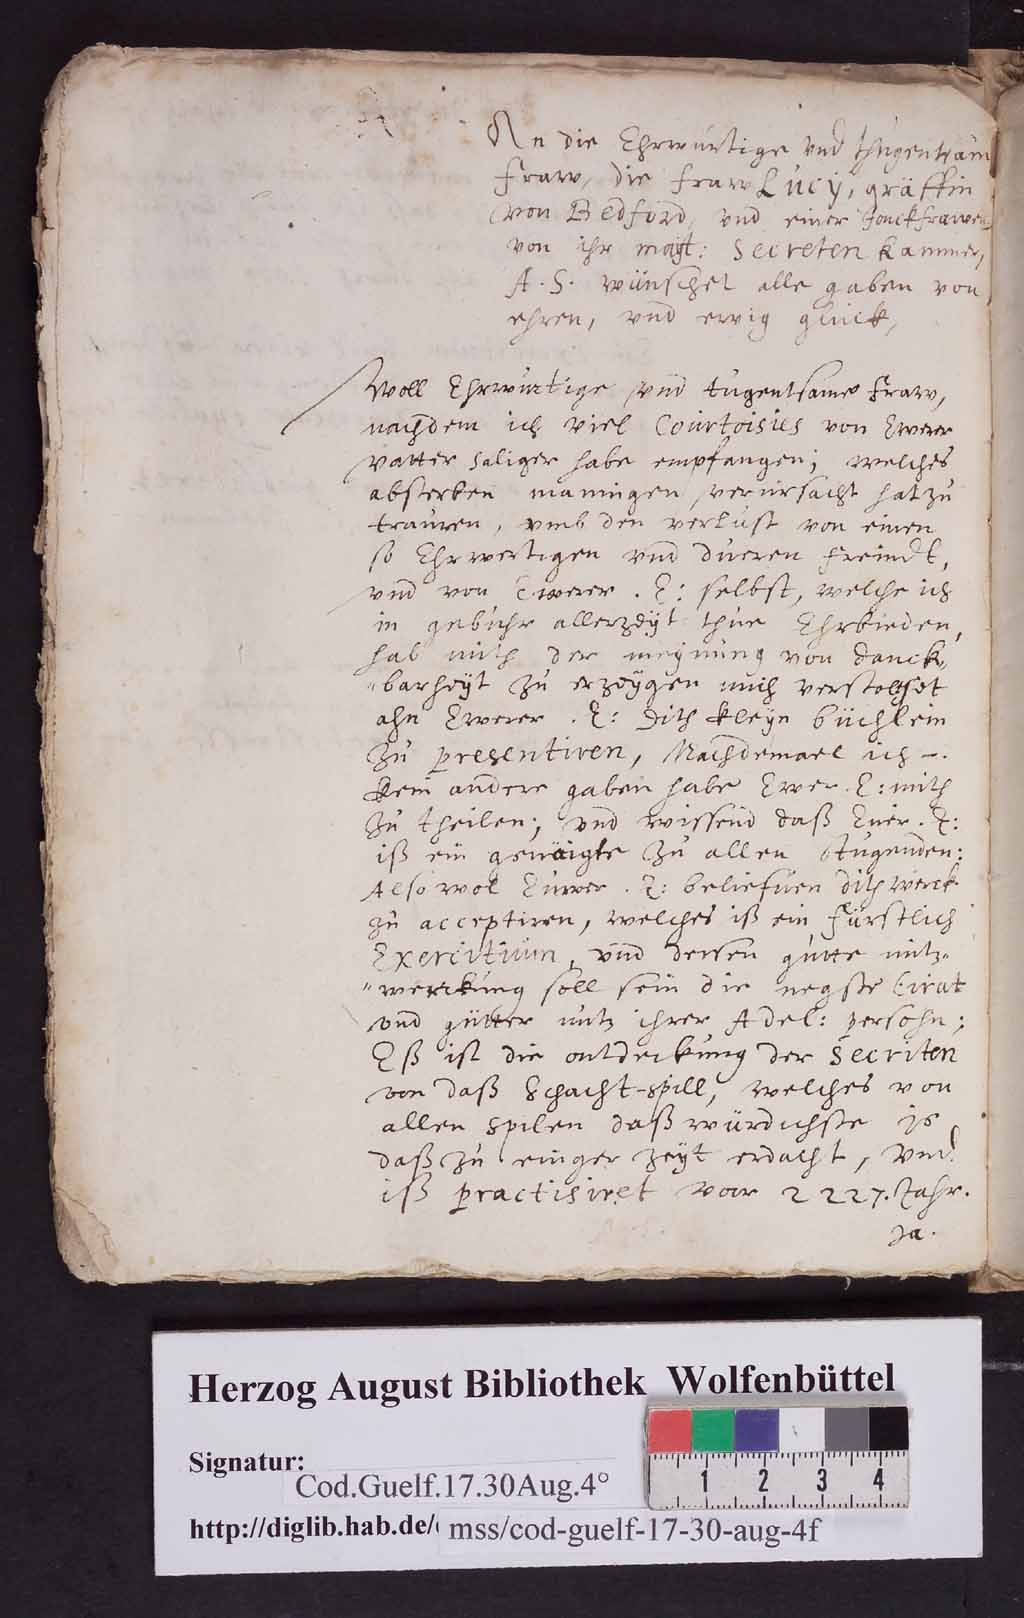 An die Ehrwurtige und thugentsam
fraw, die fraw Lucij, gräffin
von Bedford, und einer Jonckfrawen
von ihr mayt: Secreten kammer,
A. S. wünschet alle gaben von
ehren, und ewig gluck,
Woll Ehrwurtige und tugentsame fraw,
nachdem ich viel Courtoisies von Ewerer
vatter saliger habe empfangen; welches
absterben manningen verursacht hat zu
trauren, umb den verlust von einen
so Ehrwertigen und dueren freindt,
und von Ewerer. E: selbst, welche ich
in gebuhr allerzeyt thue Ehrbieden,
hab mich der meynung von danck-
"barheyt zu erzeygen mich verstoltset
ahn Ewerer. E: Dith kleyn büchlein
zu presentiren, Nachdemael ich -.
kein andere gaben habe Ewer. E: mith
zu theilen; und wissend daß Euer. E:
iß ein genäigte zu allen tugenden:
Also wol Euwer. E: beliefuen dith werck
zu acceptiren, welches iß ein fürstlich
Exercitium, und dessen gutte mitz-
"werckung soll sein die negste Cirat
und gütter mitz ihrer Adel: persohn;
Eß ist die entdeckung der Secriten
von daß Schacht-spill, welches von
allen spilen daß würdichste is
daß zu einger zeyt erdacht, und
iß practisiret vor 2227. Jahr.
Ja.
Herzog August Bibliothek Wolfenbüttel
Signatur:
Cod.Guelf.17.30Aug.4°
http://diglib.hab.de/ mss/cod-guelf-17-30-aug-4f
1 2 3 4